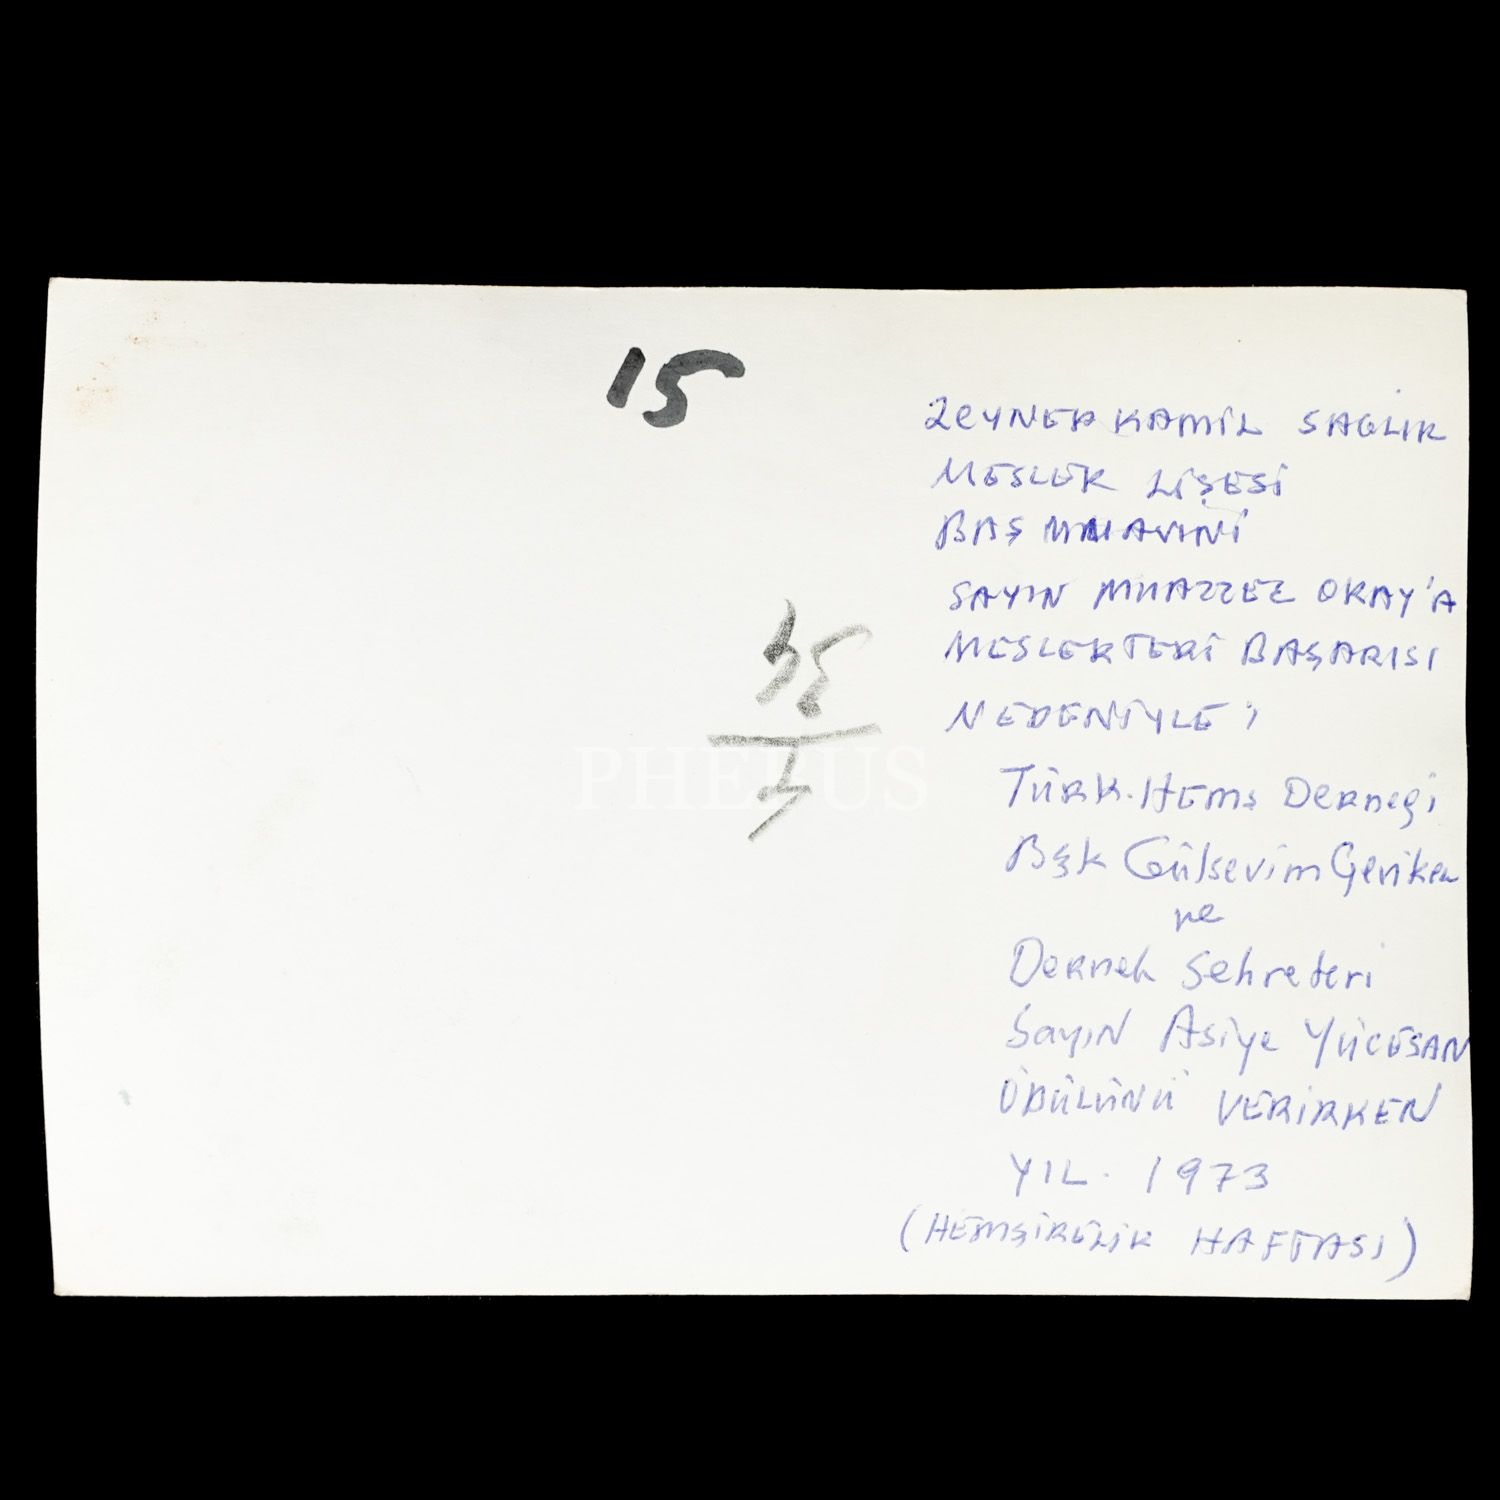 15
ZEYNEP KAMİL SAĞLIK
MESLEK LİŞESİ
BAŞ MUAVİNİ
SAYIN MUAZZEZ OKAY'A
MESLEKTEKİ BAŞARISI
NEDENİYLE,
TÜRK.HEMŞ DERNEĞİ
Bşk Gülsevim Çeviker
ve
Dernek Sekreteri
Sayın Asiye YÜCESAN
ÖDÜLÜNÜ VERİRKEN
YIL. 1973
(HEMŞİRELİK HAFTASI)
PHEBUS